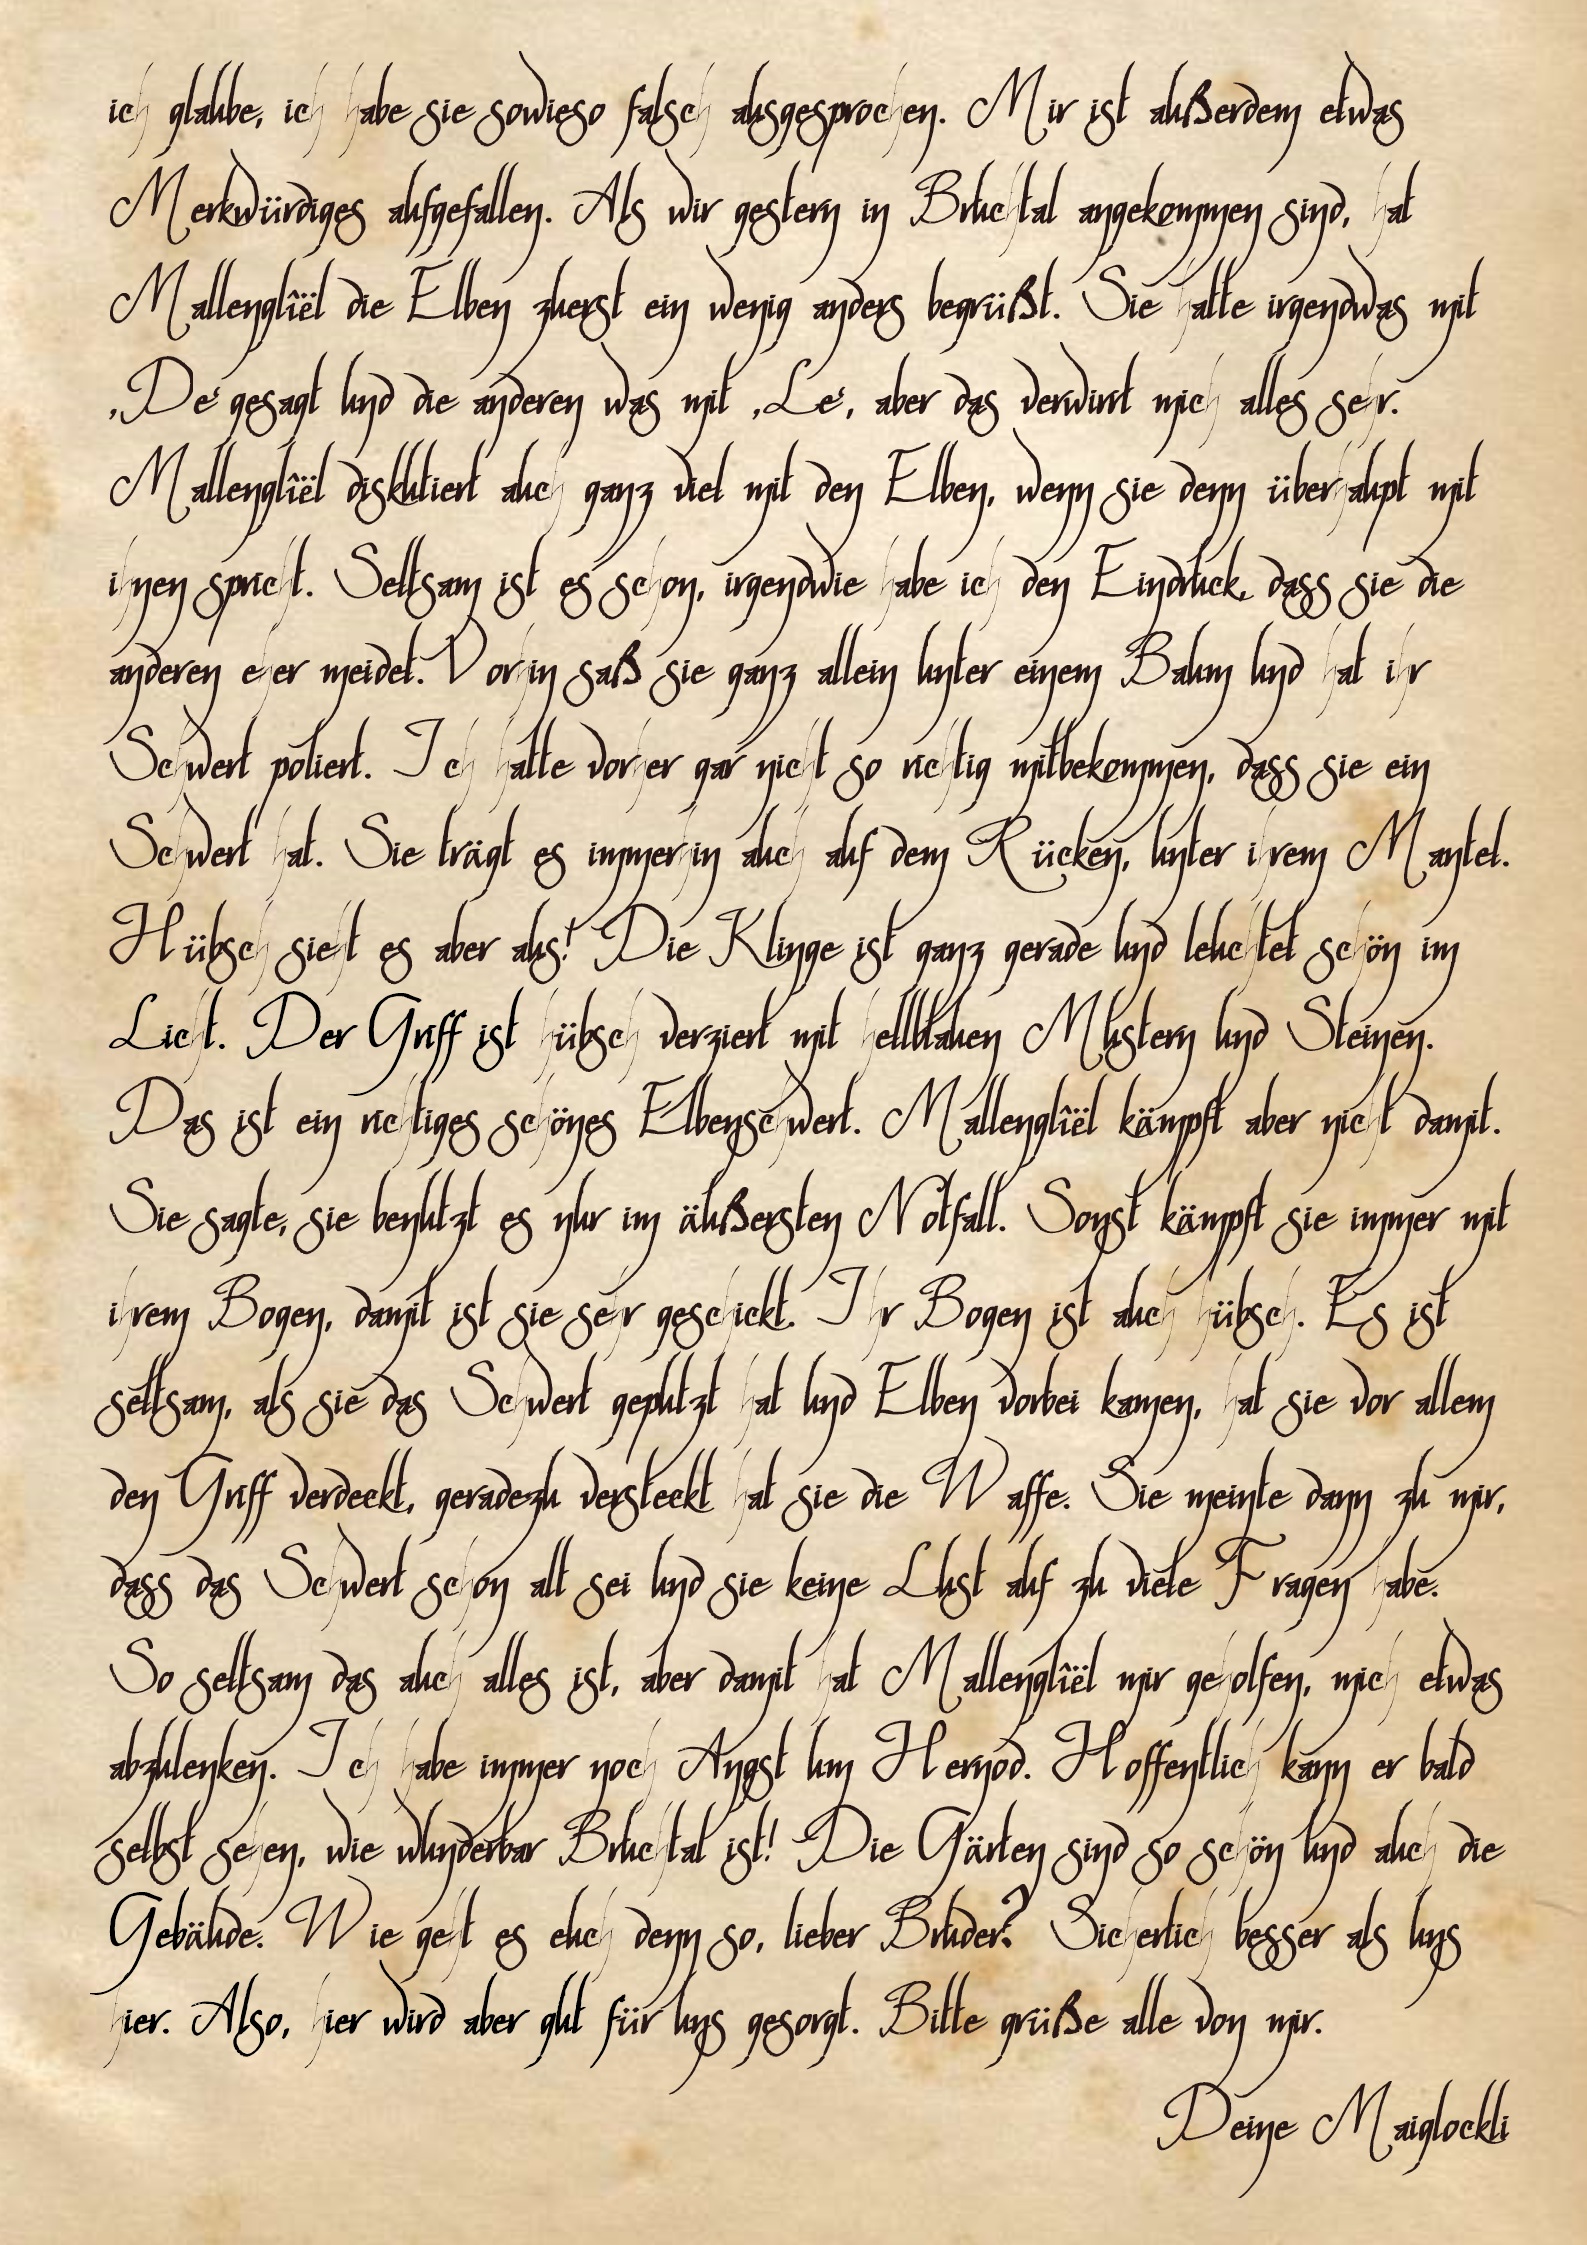 ich glaube, ich habe sie sowieso falsch ausgesprochen. Mir ist außerdem etwas
Merkwürdiges aufgefallen. Als wir gestern in Bruchtal angekommen sind, hat
Mallenglîël die Elben zuerst ein wenig anders begrüßt. Sie hatte irgendwas mit
‚De‘ gesagt und die anderen was mit ‚Le‘, aber das verwirrt mich alles sehr.
Mallenglîël diskutiert auch ganz viel mit den Elben, wenn sie denn überhaupt mit
ihnen spricht. Seltsam ist es schon, irgendwie habe ich den Eindruck, dass sie die
anderen eher meidet. Vorhin saß sie ganz allein unter einem Baum und hat ihr
Schwert poliert. Ich hatte vorher gar nicht so richtig mitbekommen, dass sie ein
Schwert hat. Sie trägt es immerhin auch auf dem Rücken, unter ihrem Mantel.
Hübsch sieht es aber aus! Die Klinge ist ganz gerade und leuchtet schön im
Licht. Der Griff ist hübsch verziert mit hellblauen Mustern und Steinen.
Das ist ein richtiges schönes Elbenschwert. Mallenglîël kämpft aber nicht damit.
Sie sagte, sie benutzt es nur im äußersten Notfall. Sonst kämpft sie immer mit
ihrem Bogen, damit ist sie sehr geschickt. Ihr Bogen ist auch hübsch. Es ist
seltsam, als sie das Schwert geputzt hat und Elben vorbei kamen, hat sie vor allem
den Griff verdeckt, geradezu versteckt hat sie die Waffe. Sie meinte dann zu mir,
dass das Schwert schon alt sei und sie keine Lust auf zu viele Fragen habe.
So seltsam das auch alles ist, aber damit hat Mallenglîël mir geholfen, mich etwas
abzulenken. Ich habe immer noch Angst um Hernod. Hoffentlich kann er bald
selbst sehen, wie wunderbar Bruchtal ist! Die Gärten sind so schön und auch die
Gebäude. Wie geht es euch denn so, lieber Bruder? Sicherlich besser als uns
hier. Also, hier wird aber gut für uns gesorgt. Bitte grüße alle von mir.
Deine Maiglockli